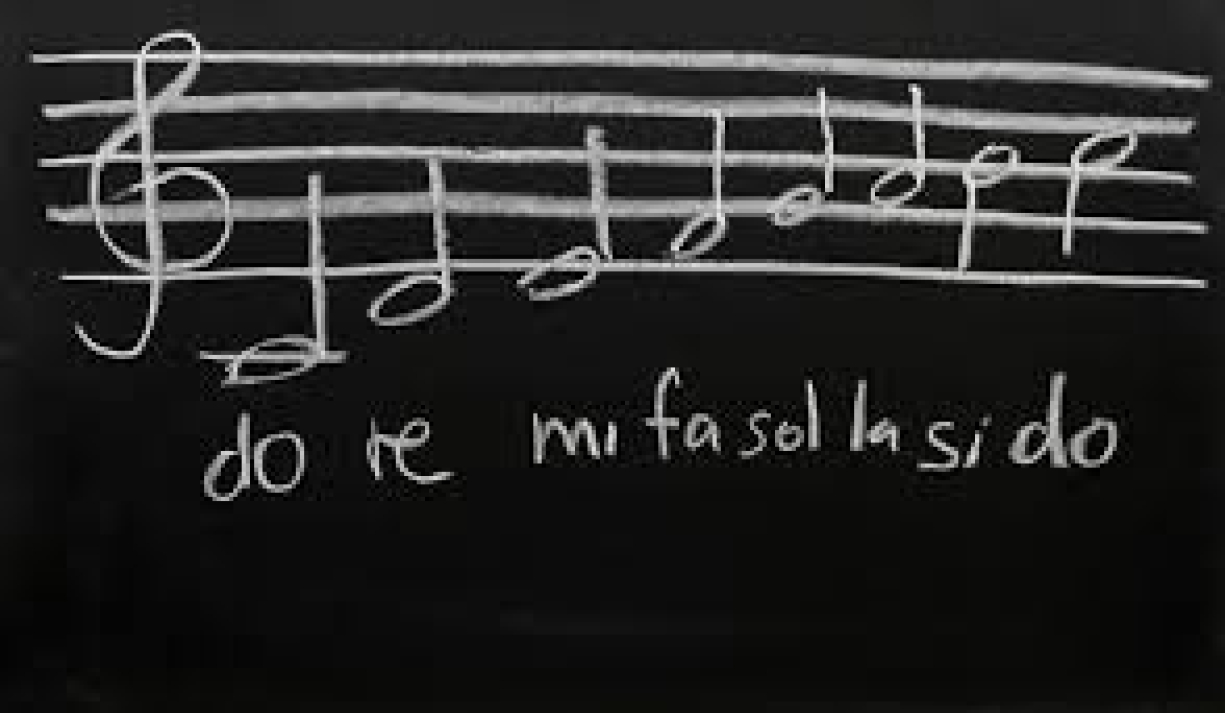 do re mi fa sol la si do